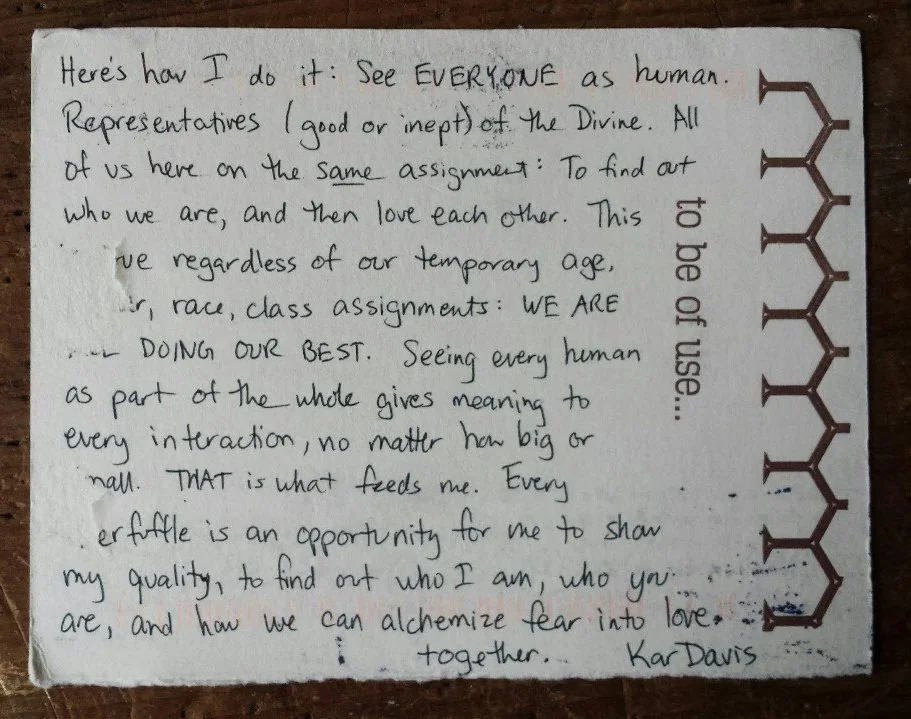 Here's how I do it: See EVERYONE as human.
Representatives (good or inept) of the Divine. All
of us here on the same assignment: To find out
who we are, and then love each other. This
ve regardless of our temporary age,
r, race, class assignments: WE ARE
DOING OUR BEST. Seeing every human
as part of the whole gives meaning to
every interaction, no matter how big or
mall. THAT is what feeds me. Every
erfuffle is an opportunity for me to show
my quality, to find out who I am, who you
are, and how we can alchemize fear into love.
together. Kar Davis
to be of use...